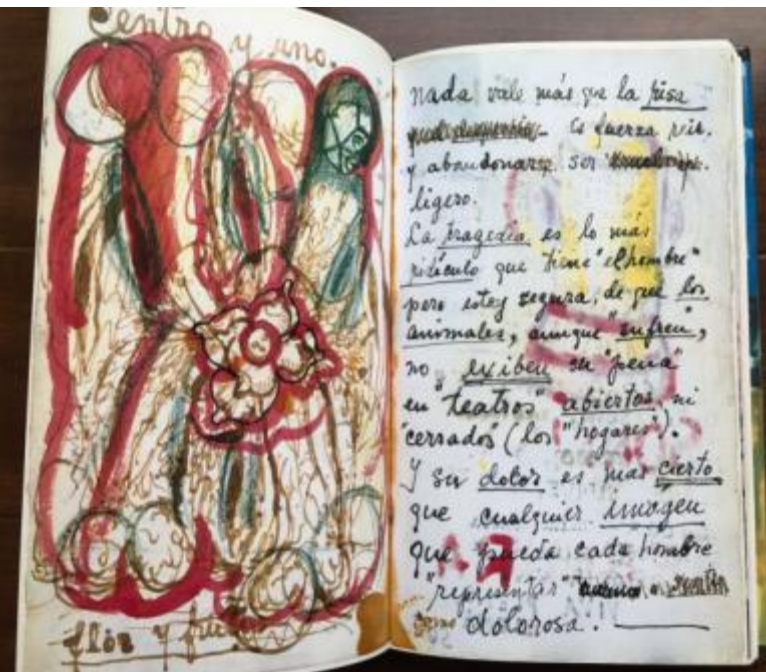 Centro y uno.
flor y fruto
nada vale más que la risa
es fuerza reir.
y abandonarse. ser
ligero.
La tragedia es lo más
ridículo que tiene "el hombre"
pero estoy segura, de que los
animales, aunque "sufren",
no exiben su "pena"
en "teatros" abiertos, ni
"cerrados" (los "hogares").
Y su dolor es mas cierto
que cualquier imagen
que pueda cada hombre
"representar"
como dolorosa.